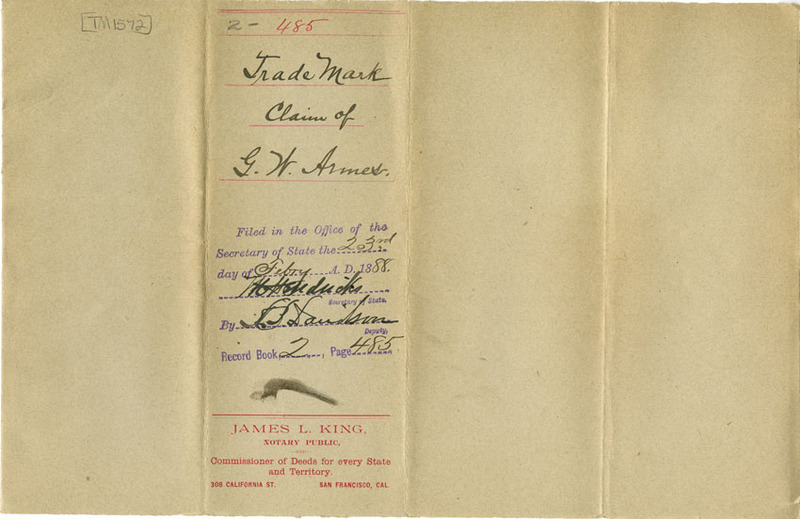 [TM1572]
2- 485
Trade Mark
Claim of
G. W. Armes.
Filed in the Office of the
Secretary of State the 23rd
day of Feby A. D. 1888.
W C Hendricks
Secretary of State.
By L B Davidson
Deputy.
Record Book 2, Page 485
JAMES L. KING,
NOTARY PUBLIC,
AND
Commissioner of Deeds for every State
and Territory.
308 CALIFORNIA ST. SAN FRANCISCO, CAL.